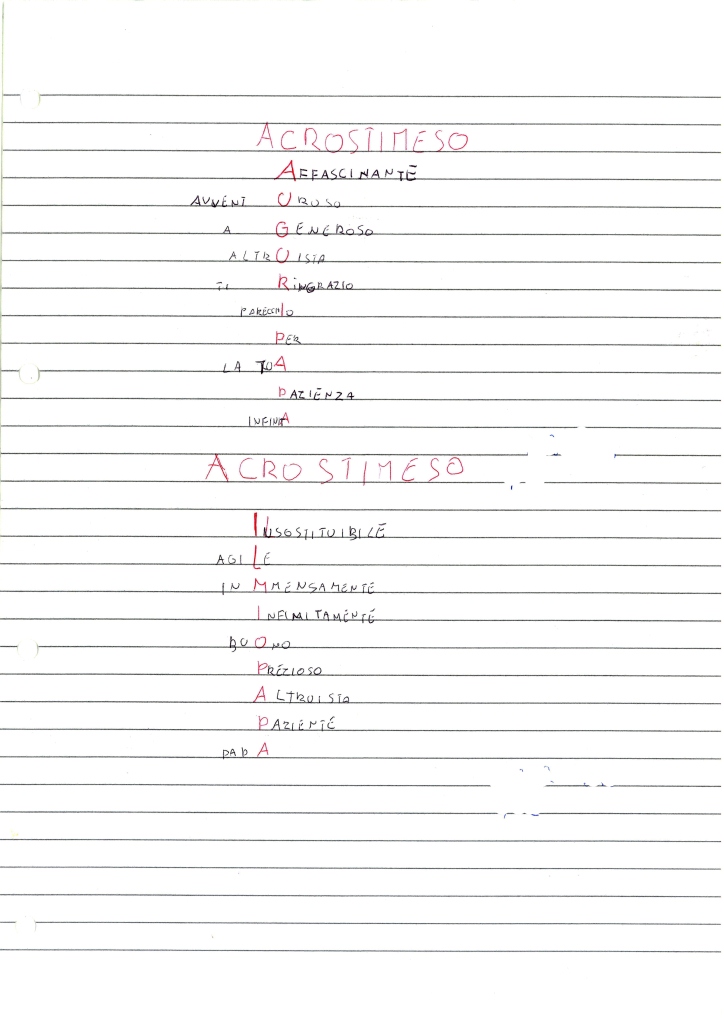 ACROSTIMESO
AFFASCINANTE
AVVENTUROSO
A GENEROSO
ALTRUISTA
TI RINGRAZIO
PARECCHIO
PER
LA TUA
PAZIENZA
INFINITA
ACROSTIMESO
INSOSTITUIBILE
AGILE
IN MMENSAMENTE
INFINITAMENTE
BUONO
PREZIOSO
ALTRUISTA
PAZIENTE
PAPA